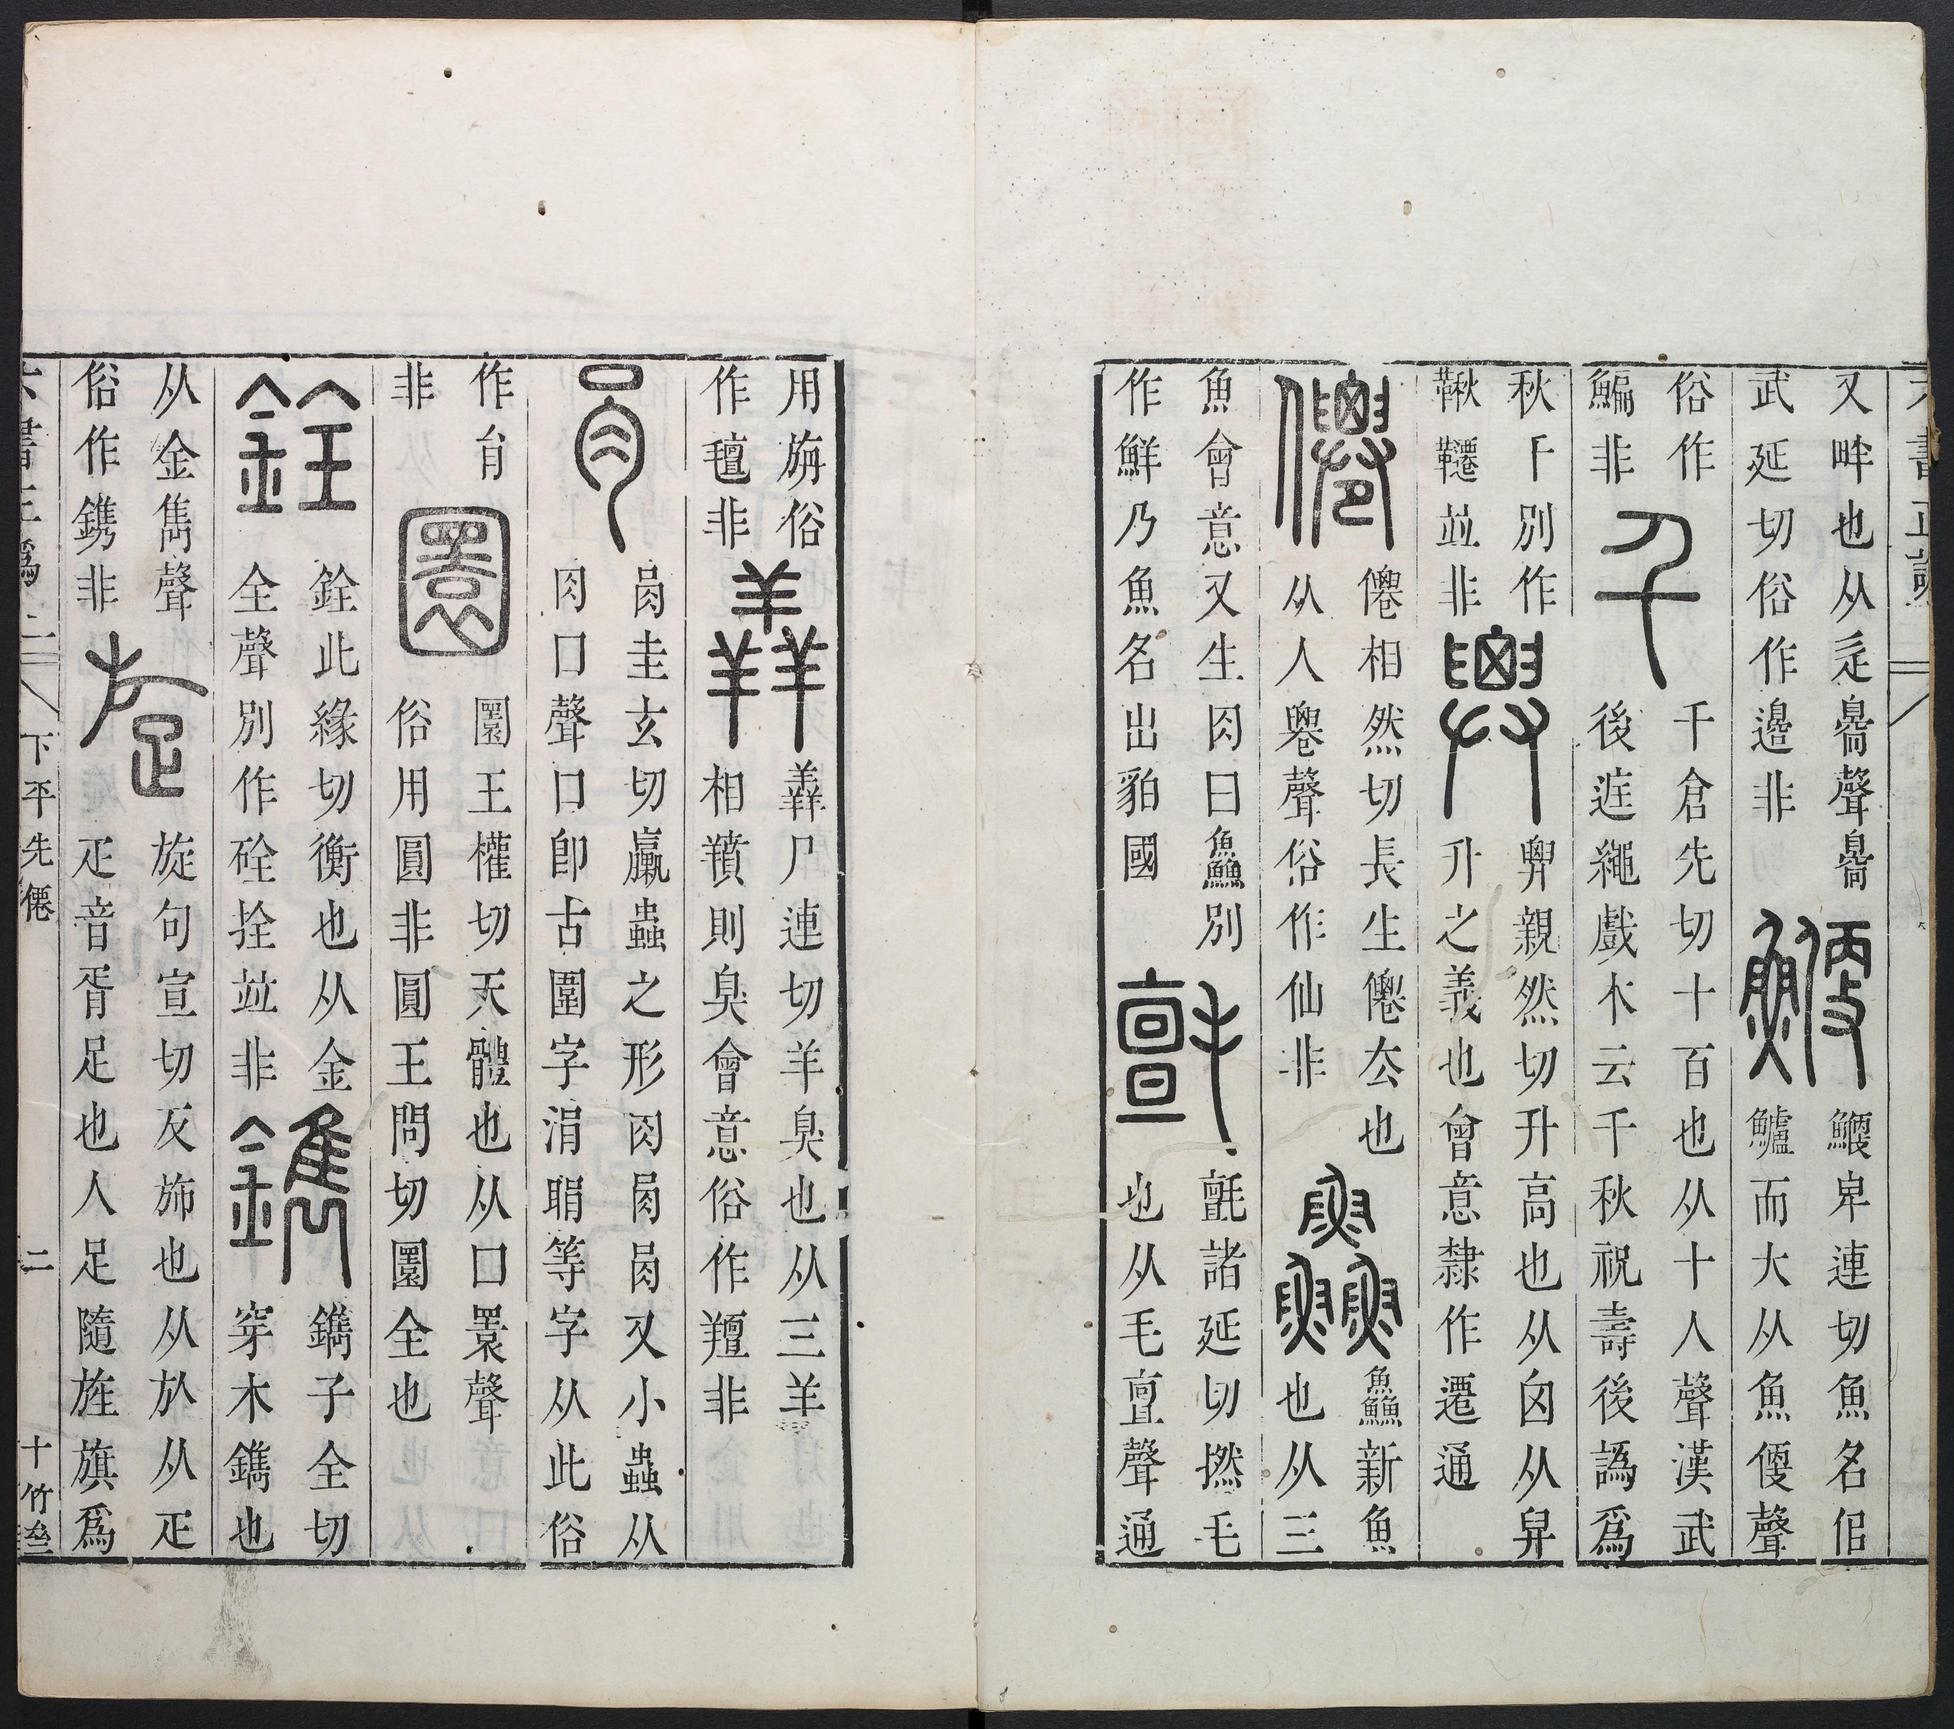 六書正譌
又畔也从辵臱聲臱
武延切俗作邊非
鯾卑連切魚名佀
鱸而大从魚㛹聲
俗作
鯿非
千倉先切十百也从十人聲漢武
後庭繩戲本云千秋祝壽後譌爲
秋千別作
鞦韆竝非
䙴親然切升高也从囟从舁
升之義也會意隸作遷通
僊相然切長生僊厺也
从人䙴聲俗作仙非
鱻新魚
也从三
魚會意又生肉曰鱻別
作鮮乃魚名出貉國
氈諸延切撚毛
也从毛亶聲通
用旃俗
作氊非
羴尸連切羊臭也从三羊
相羵則臭會意俗作羶非
肙圭玄切蠃蟲之形肉肙肙又小蟲从
肉口聲口卽古圍字涓睊等字从此俗
作肻
非
圜王權切天體也从囗瞏聲
俗用圓非圓王問切圜全也
銓此緣切衡也从金
全聲別作硂拴竝非
鐫子全切
穿木鐫也
从金雋聲
俗作鎸非
旋句宣切反斾也从㫃从疋
疋音胥足也人足隨旌旗爲
六書正譌 二 下平先僊 二 十竹齋